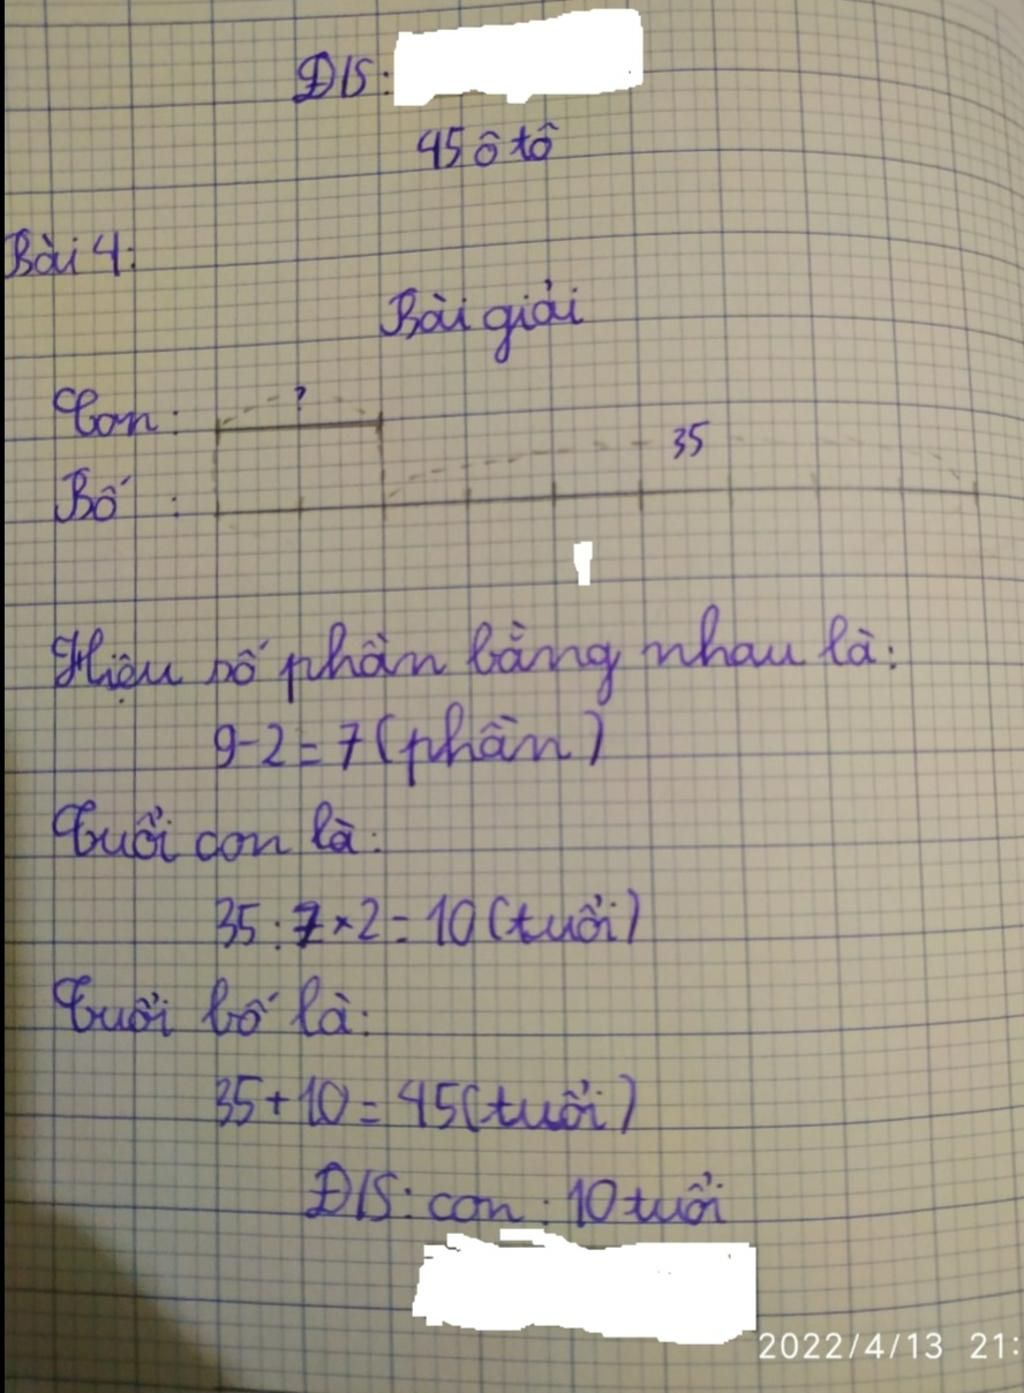 Đ/S:
45 ô tô
Bài 4:
Bài giải
Con: ?
35
Bố :
Hiệu số phần bằng nhau là:
9-2=7(phần)
Tuổi con là:
35:7×2=10(tuổi)
Tuổi bố là:
35+10=45(tuổi)
Đ/S: con: 10 tuổi
2022/4/13 21: